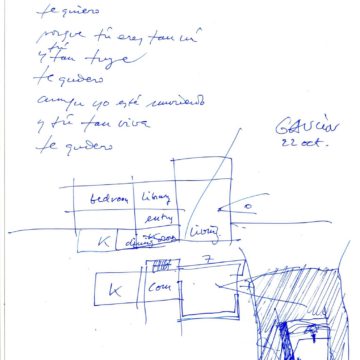 te quiero
porque tú eres tan mí
tú
y tan tuya
te quiero
aunqu yo esté muriendo
y tú tan viva
te quiero
GAUCÍN
22 oct.
bedroom
library
entry
living
K
dining room
K
com